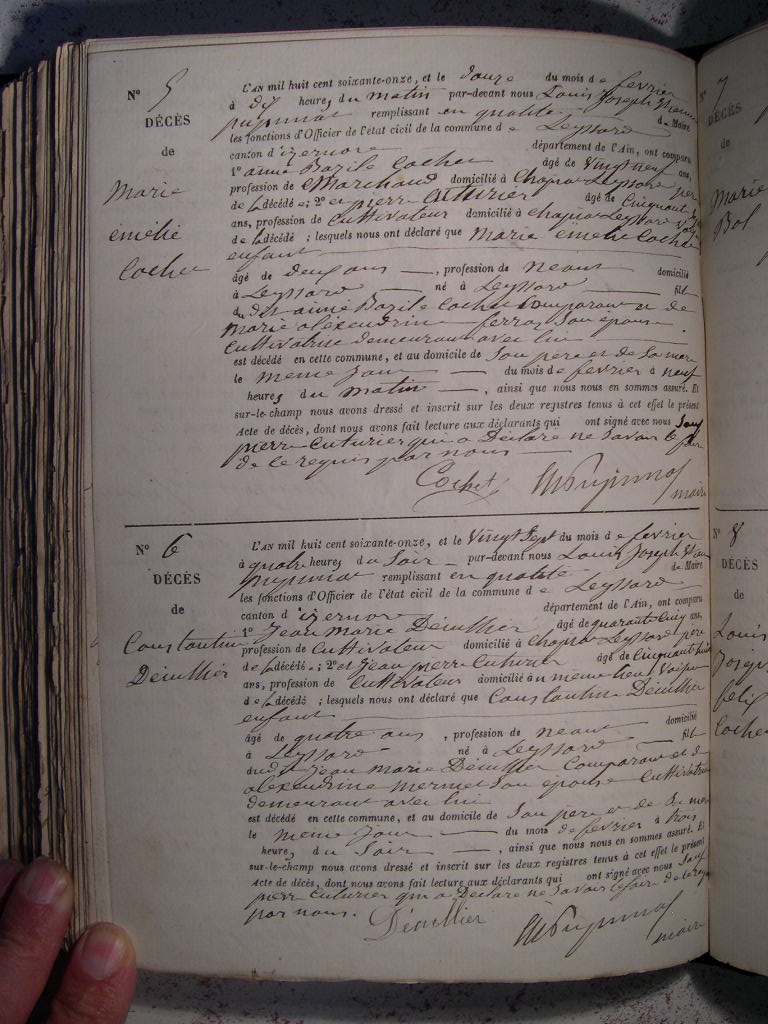 N° 5
DÉCÈS
de
Marie
émélie
Cochet
L'AN mil huit cent soixante-onze, et le douze du mois de fevrier
à dix heures du matin par-devant nous Louis Joseph Thomas
Puginnat remplissant en qualité de Maire
les fonctions d'Officier de l'état cicil de la commune de Leyssard
canton d'izernore département de l'Ain, ont comparu
1° aimé Bazile Cochet âgé de vingt neuf ans,
profession de Marchand domicilié à Chapia Leyssard père
de la décédée; 2° et pierre Cuturier âgé de Cinquante
ans, profession de Cultivateur domicilié à Chapia Leyssard
de la décédée; lesquels nous ont déclaré que Marie émélie Cochet
enfant
âgé de deux ans, profession de neant domicilié
à Leyssard né à Leyssard fille
du dit aimé Bazile Cochet Comparant et de
Marie aléxendrine ferroz Son épouse
Cultivatrice demeurant avec lui
est décédé en cette commune, et au domicile de Son père et de Sa mère
le meme jour du mois de fevrier à neuf
heures du matin, ainsi que nous nous en sommes assuré. Et
sur-le-champ nous avons dressé et inscrit sur les deux registres tenus à cet effet le présent
Acte de décès, dont nous avons fait lecture aux déclarants qui ont signé avec nous Sauf
pierre Cuturier qui a Déclaré ne Savoir le faire
de ce requis par nous
Cochet
maire
N° 6
DÉCÈS
de
Constantine
Décullier
L'AN mil huit cent soixante-onze, et le Vingt Sept du mois de fevrier
à quatre heures du Soir par-devant nous Louis Joseph Thomas
Puginnat remplissant en qualité de Maire
les fonctions d'Officier de l'état cicil de la commune de Leyssard
canton d'izernore département de l'Ain, ont comparu
1° Jean Marie Décullier âgé de quarante Cinq ans,
profession de Cultivateur domicilié à Chapia Leyssard père
de la décédée; 2° et Jean pierre Cuturier âgé de Cinquante huit
ans, profession de Cultivateur domicilié au meme lieu Voisin
de la décédée; lesquels nous ont déclaré que Constantine Décullier
enfant
âgé de quatre ans, profession de neant domicilié
à Leyssard né à Leyssard fille
du dit Jean Marie Décullier Comparant et d
aléxendrine Mermet Son épouse Cultivatrice
demeurant avec lui
est décédé en cette commune, et au domicile de Son père et de Sa mère
le meme jour du mois de fevrier à trois
heures du Soir, ainsi que nous nous en sommes assuré. Et
sur-le-champ nous avons dressé et inscrit sur les deux registres tenus à cet effet le présent
Acte de décès, dont nous avons fait lecture aux déclarants qui ont signé avec nous Sauf
pierre Cuturier qui a Déclaré ne Savoir le faire de ce requis
par nous.
Décullier
maire
N° 7
DÉCÈS
de
Marie
Bol
N° 8
DÉCÈS
de
Louis
Joseph
félix
Cochet